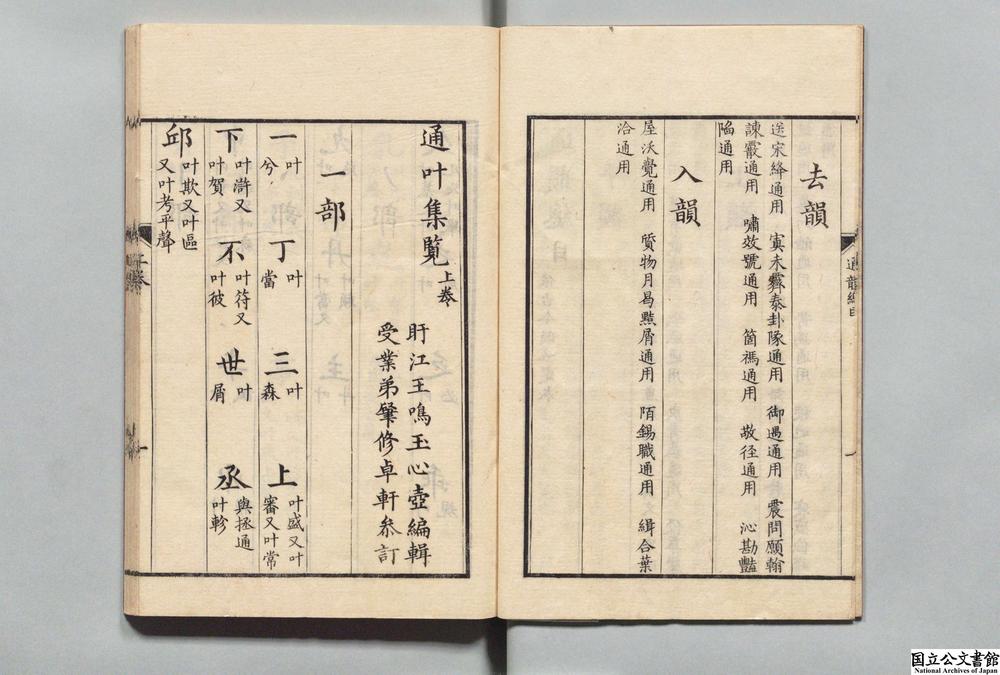 去韻
送宋絳通用　寘未霽泰卦隊通用　御遇通用　震問願翰
諫霰通用　嘯效號通用　箇禡通用　敬径通用　沁勘豔
陷通用
入韻
屋沃覺通用　質物月曷黠屑通用　陌錫職通用　緝合葉
洽通用
通韻總目
通叶集覽上卷
盱江王鳴玉心壺編輯
受業弟肇修卓軒叅訂
一部
一叶兮　丁叶當　三叶森　上叶盛又叶審又叶常
下叶滸又叶賀　不叶符又叶彼　世叶屑　丞與拯通叶軫
邱叶欺又叶區又叶考平聲
上卷
一
国立公文書館
National Archives of Japan